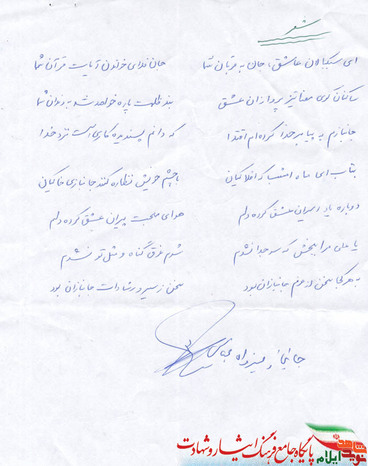 شعر
ای سبکبالان عاشق، جان به قربان شما
جان فدای خواندن آیات قرآن شما
ساکنان کوی معنا نیز پردازان عشق
بند ظلمت پاره خواهد شد به دندان شما
جانبازم به پیامبر خدا کرده ام اقتدا
که دانم پسندیده کاری است نزد خدا
بتاب ای ماه امشب که افلاکیان
با چشم خویش نظاره کنند جانبازی خاکیان
دوباره یاد اسیران عشق کرده دلم
هوای صحبت پیران عشق کرده دلم
یا علی مرا ببخش که سر جدا نشدم
شدم غرق گناه و مثل تو نشدم
به هر کجا سخن از عزم جانبازان بود
سخن ز صبر و رشادات جانبازان بود
جانباز
پایگاه جامع فرهنگ ایثار و شهادت
نوید ایلام